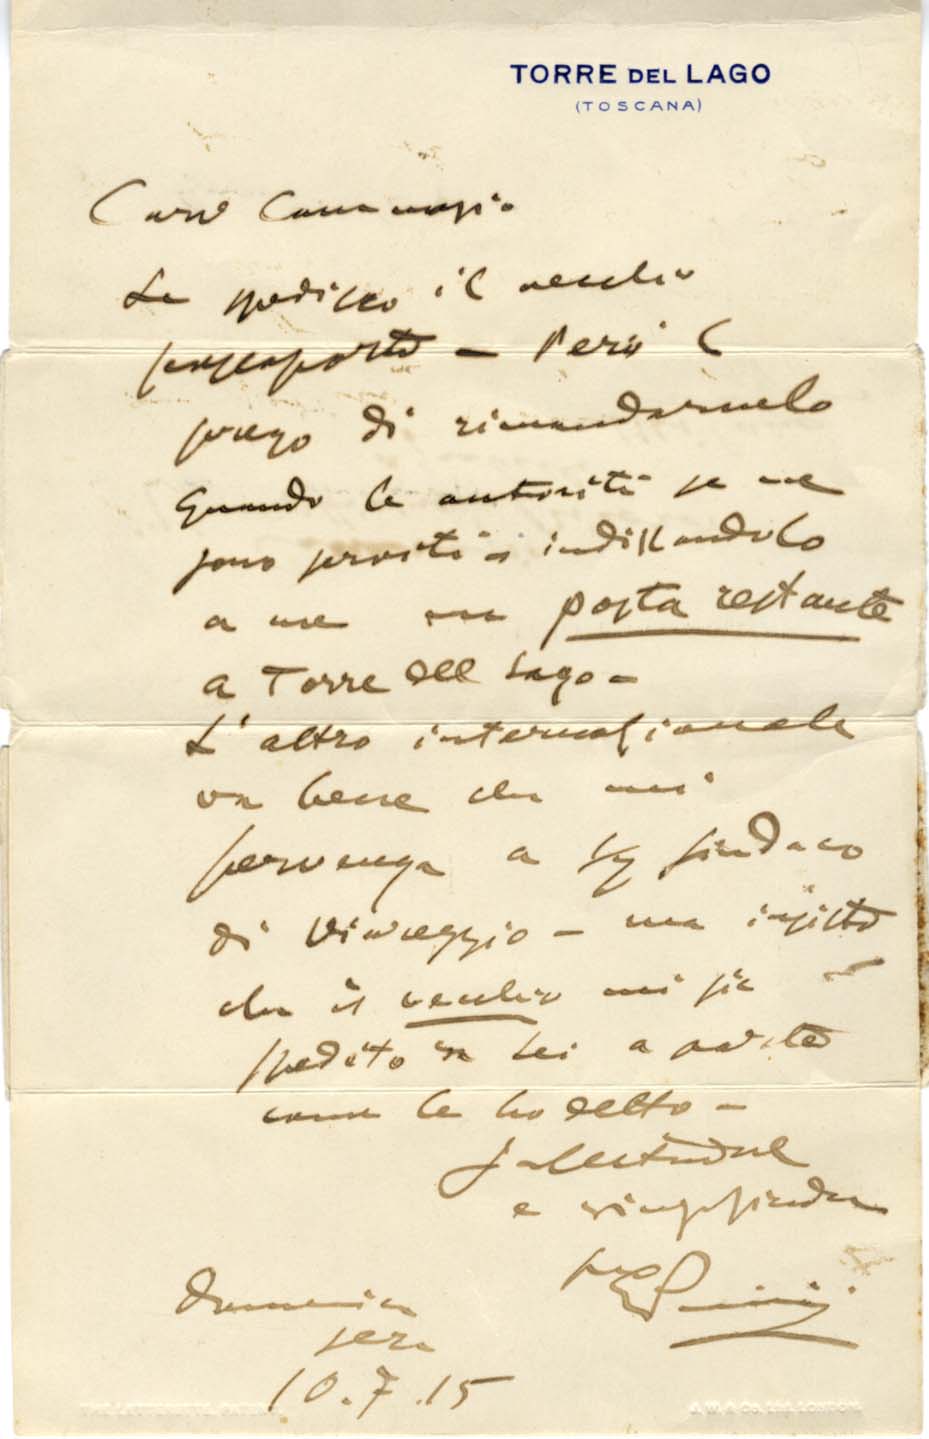 TORRE DEL LAGO
(TOSCANA)
Caro
Le spedisco il vecchio
passaporto – Però la
prego di rimandarmelo
quando le autorità se ne
sono servite – indirizzandolo
a me posta restante
a Torre del Lago –
L'altro internazionale
va bene che mi
pervenga a sindaco
di Viareggio – ma insisto
che il vecchio mi sia
spedito da Lei a parte
come le ho detto –
Salutandola
e ringraziandola
suo GPuccini
domenica
sera
10.7.15